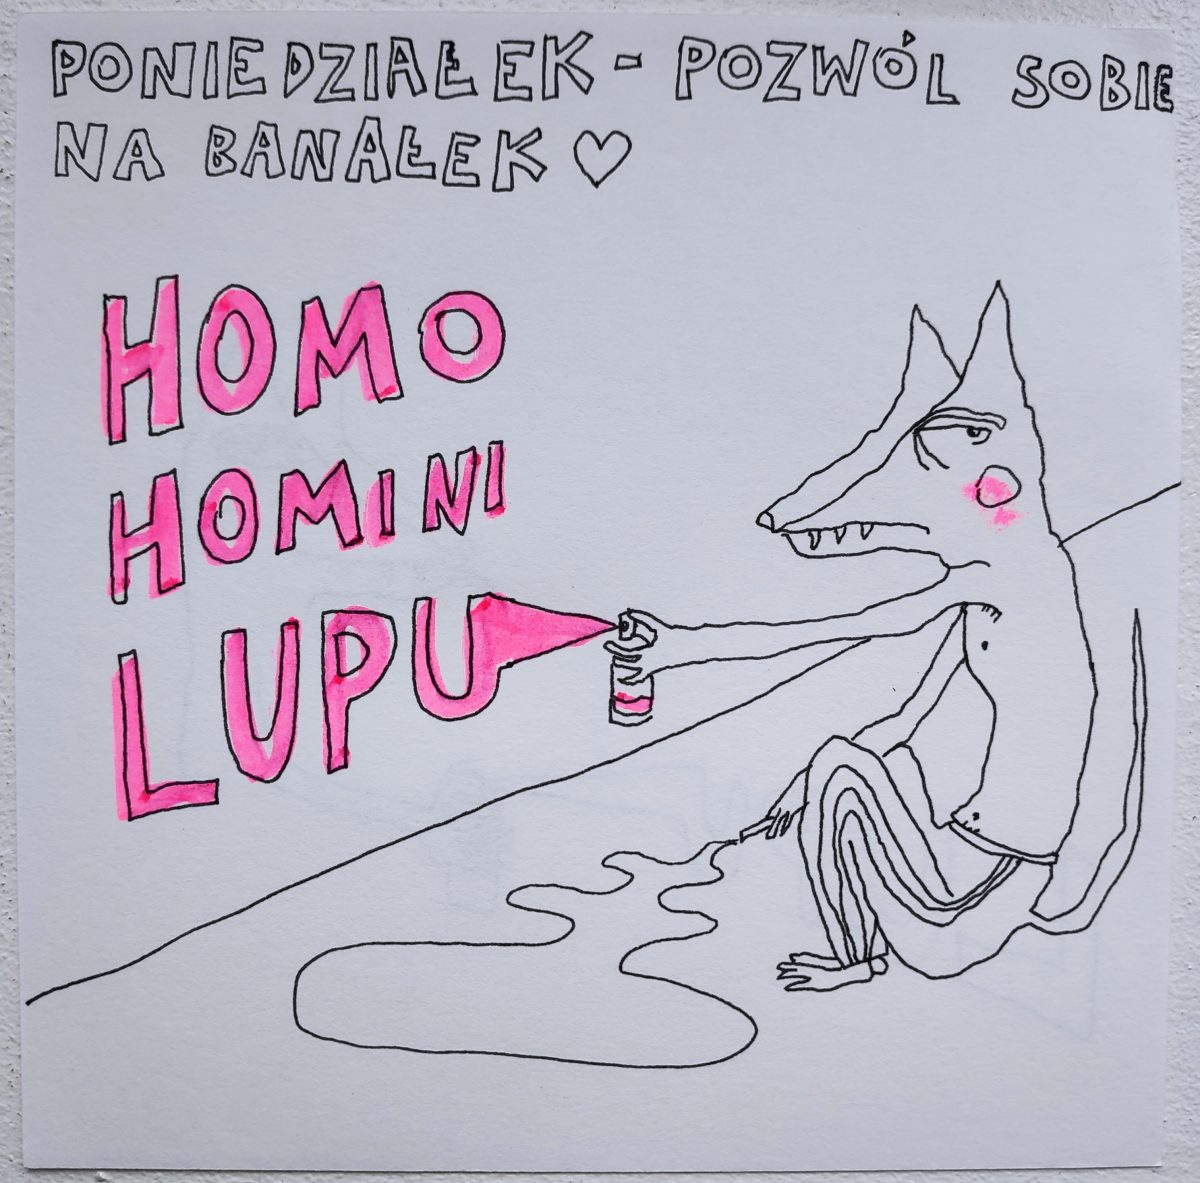 PONIEDZIAŁEK - POZWÓL SOBIE
NA BANAŁEK ♡
HOMO
HOMINI
LUPU